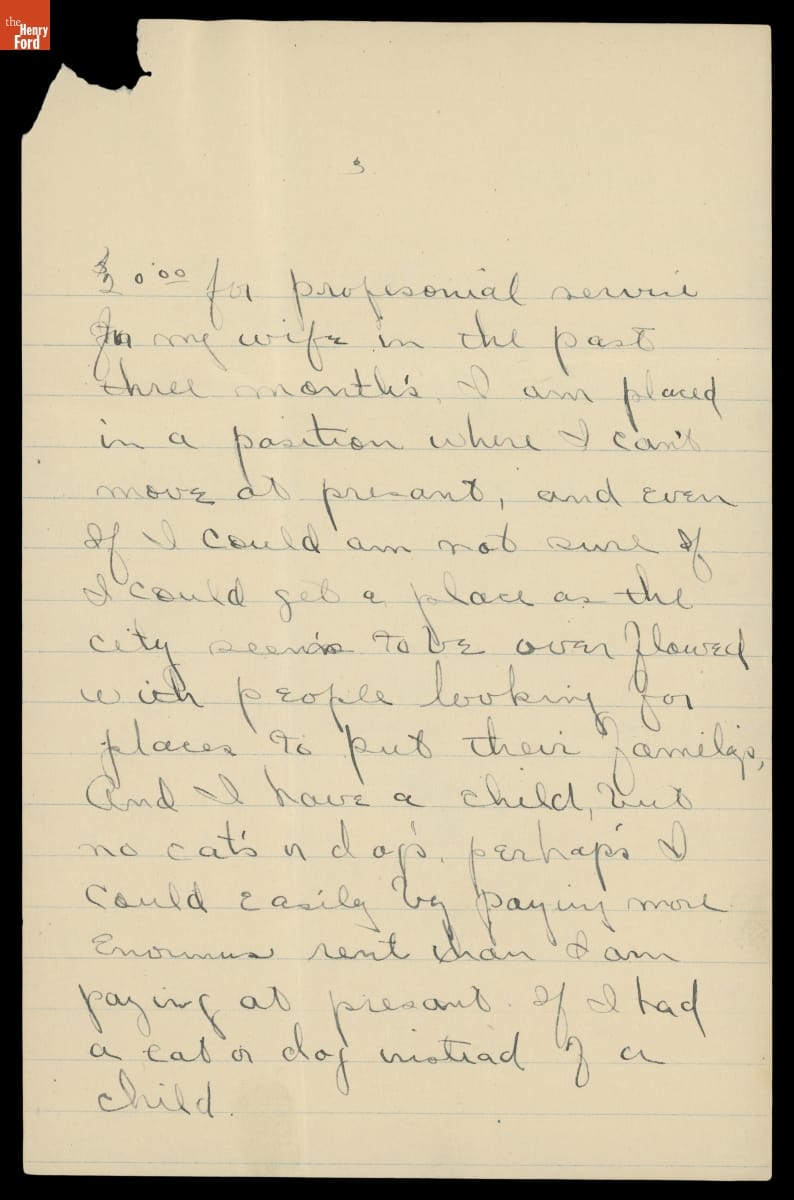 the
Henry
Ford
3
$20.00 for profesonial service
for my wife in the past
three month's, I am placed
in a position where I can't
move at presant, and even
If I could am not sure If
I could get a place as the
city seem's to be over flowed
with people looking for
places to put their familys,
And I have a child, but
no cat's or dog's. perhap's I
could easily by paying more
Enormus rent than I am
paying at presant. If I had
a cat or dog instead of a
child.